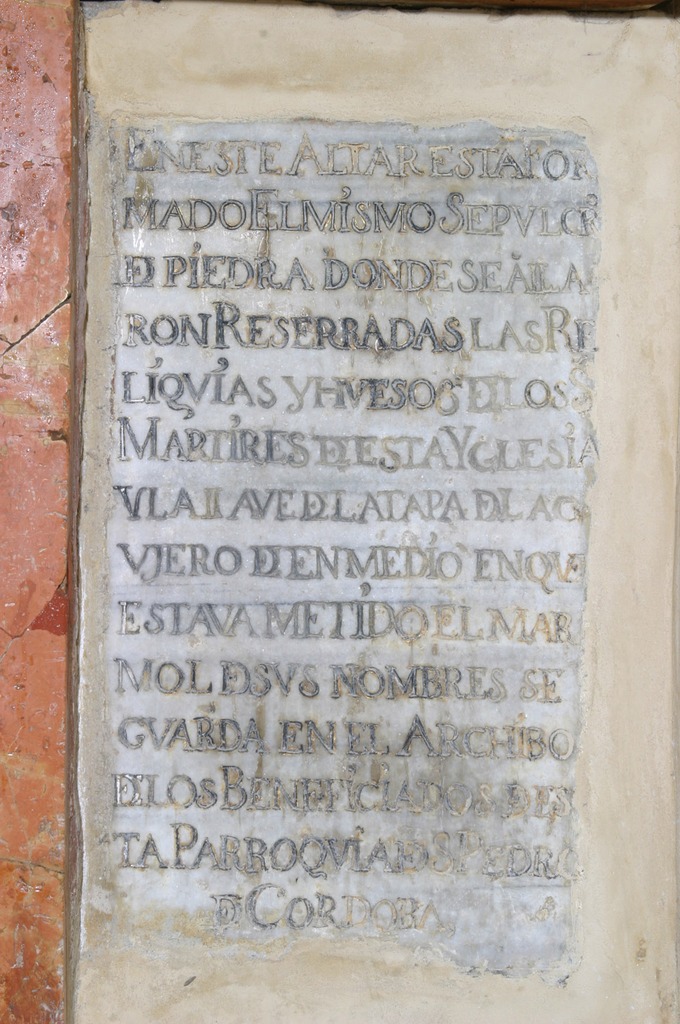 EN ESTE ALTAR ESTA FOR
MADO EL MISMO SEPVLCR
DE PIEDRA DONDE SE ALLA
RON RESERRADAS LAS RE
LIQVIAS Y HVESOS DE LOS S
MARTIRES DE ESTA YGLESIA
Y LA LLAVE DE LA TAPA DL AG
VJERO DE EN MEDIO EN QVE
ESTAVA METIDO EL MAR
MOL DE SVS NOMBRES SE
GVARDA EN EL ARCHIBO
DE LOS BENEFICIADOS DE ES
TA PARROQVIA DE S PEDRO
DE CORDOBA